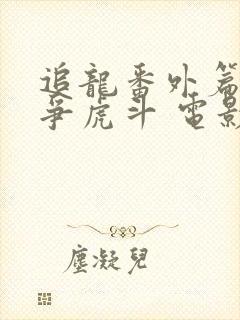 追龍番外篇
爭虎斗 電影
塵凝兒